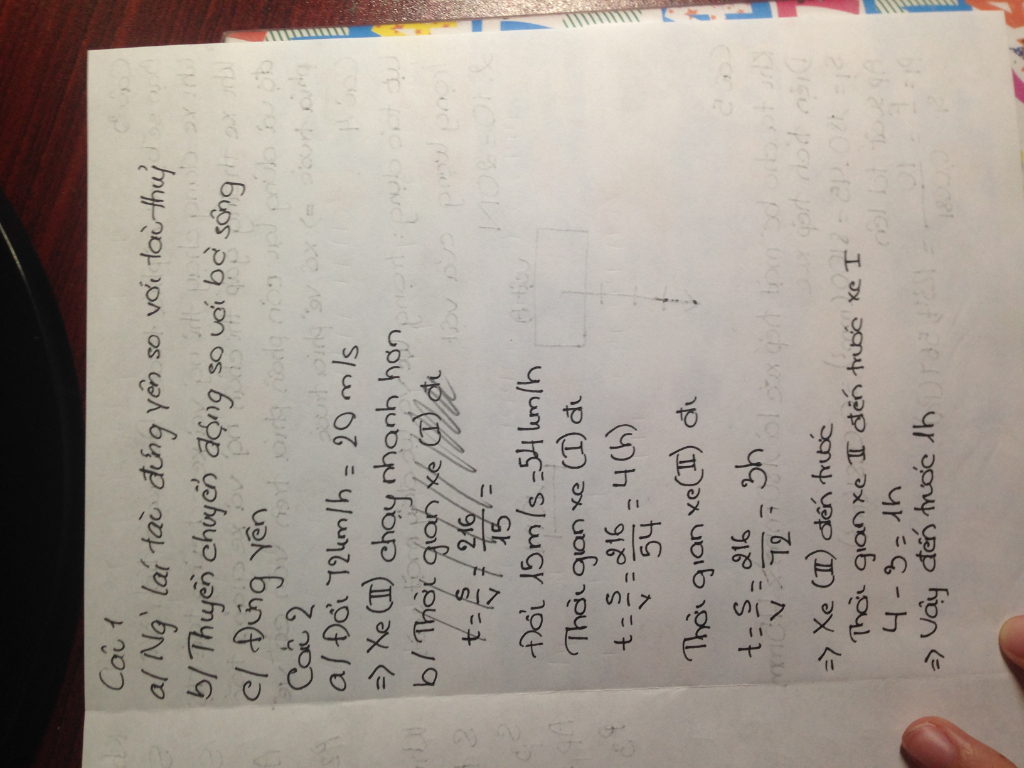 Câu 1
a/ Ng` lái tàu đứng yên so với tàu thuỷ
b/ Thuyền chuyển động so với bờ sông
c/ Đứng yên
Câu 2
a/ Đổi 72km/h = 20 m/s
=> Xe (II) chạy nhanh hơn
b/ Thời gian xe (I) đi
t = s/v = 216/15 =
Đổi 15m/s = 54km/h
Thời gian xe (I) đi
t = s/v = 216/54 = 4(h)
Thời gian xe (II) đi
t = s/v = 216/72 = 3h
=> Xe (II) đến trước
Thời gian xe II đến trước xe I
4 - 3 = 1h
=> Vậy đến trước 1h